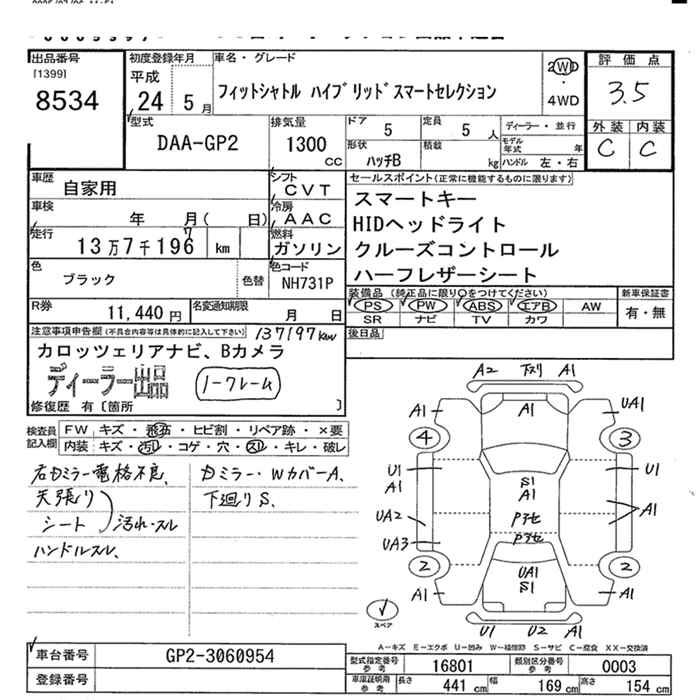 出品番号
[1399]
8534
初度登録年月
平成
24 5 月
車名・グレード
フィットシャトル ハイブリッドスマートセレクション
2WD
・
4WD
評価点
3.5
外装 内装
C C
型式
DAA-GP2
排気量
1300
CC
ドア
5
定員
5 人
ディーラー・並行
形状
ハッチB
積載
kg
モデル年式 年
ハンドル 左・右
車歴
自家用
シフト
CVT
車検
年 月( 日)
冷房
AAC
走行
13万7千196 km
7
燃料
ガソリン
色
ブラック
色替
色コード
NH731P
R券
11,440円
名変通知期限
月 日
セールスポイント(正常に機能するものに限ります)
スマートキー
HIDヘッドライト
クルーズコントロール
ハーフレザーシート
装備品 (純正品に限り○をつけてください)
PS PW ABS エアB AW
SR ナビ TV カワ
新車保証書
有・無
後日品
注意事項申告欄(不具合内容等は具体的に記入して下さい)
137197km
カロッツェリアナビ、Bカメラ
ディーラー出品
ノークレーム
修復歴 有〔箇所 〕
検査員記入欄
FW キズ・飛石・ヒビ割・リペア跡・×要
内装:キズ・汚れ・コゲ・穴・スリ・キレ・破レ
右ミラー電格不良、
天張り
シート 汚れ・スレ
ハンドルスレ、
ミラー・WカバーA、
下廻りS、
A2 下スリ A1
A1 A1 UA1
4 3
U1 U1
A1
S1
A1
A1
UA2
Pアセ
UA3
Pアセ
2 2
UA1
S1
A1 A1
スペア
U1 U2 A1
A―キズ E―エクボ U―凹み W―補修跡 S―サビ C―腐食 XX―交換済
車台番号
GP2-3060954
登録番号
型式指定番号
参考
16801
類別区分番号
参考
0003
車庫証明用
参考
長さ 441 cm
幅 169 cm
高さ 154 cm